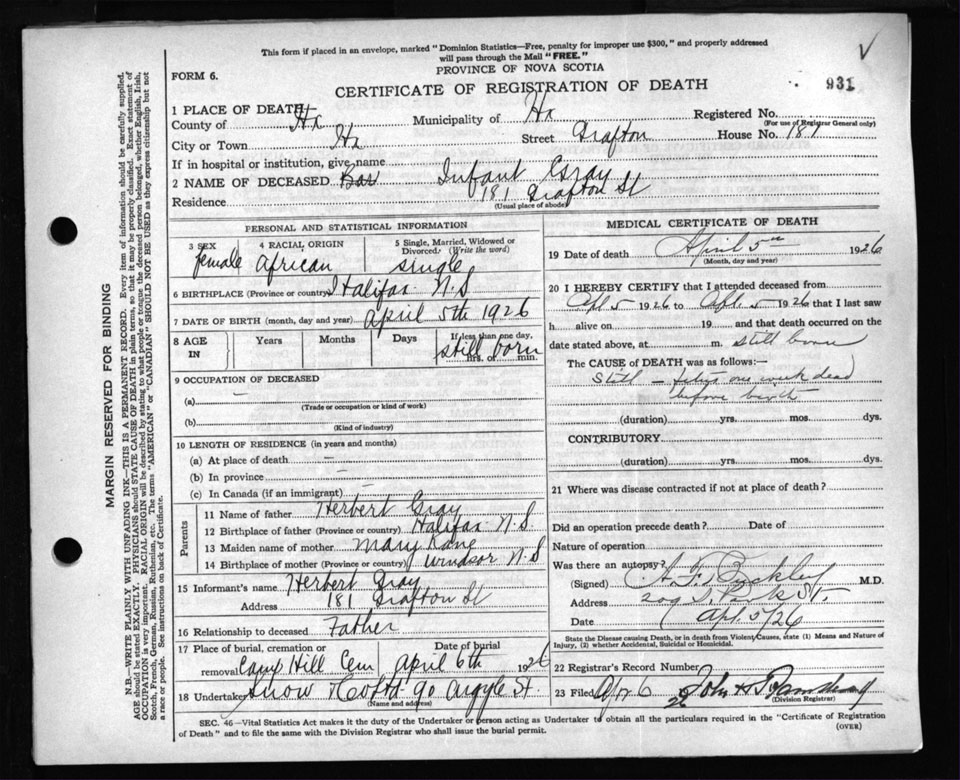 This form if placed in an envelope, marked "Dominion Statistics—Free, penalty for improper use $300," and properly addressed
will pass through the Mail "FREE."
PROVINCE OF NOVA SCOTIA
FORM 6.
CERTIFICATE OF REGISTRATION OF DEATH
931
1 PLACE OF DEATH
County of Hx Municipality of Hx Registered No.
(For use of Registrar General only)
City or Town Hx Street Grafton House No. 181
If in hospital or institution, give name
2 NAME OF DECEASED Infant Gray
Residence 181 Grafton St
(Usual place of abode)
PERSONAL AND STATISTICAL INFORMATION
3 SEX female
4 RACIAL ORIGIN African
5 Single, Married, Widowed or Divorced. (Write the word) single
6 BIRTHPLACE (Province or country) Halifax N.S
7 DATE OF BIRTH (month, day and year) April 5th 1926
8 AGE IN Years Months Days If less than one day, hrs. or min.
still born
9 OCCUPATION OF DECEASED
(a) —
(Trade or occupation or kind of work)
(b)
(Kind of industry)
10 LENGTH OF RESIDENCE (in years and months)
(a) At place of death —
(b) In province —
(c) In Canada (if an immigrant) —
Parents
11 Name of father Herbert Gray
12 Birthplace of father (Province or country) Halifax N.S.
13 Maiden name of mother Mary Kane
14 Birthplace of mother (Province or country) Windsor N.S
15 Informant's name Herbert Gray
Address 181 Grafton St
16 Relationship to deceased Father
17 Place of burial, cremation or removal Camp Hill Cem
Date of burial April 6th 1926
18 Undertaker Snow & Co Ltd 90 Argyle St.
(Name and address)
MEDICAL CERTIFICATE OF DEATH
19 Date of death April 5th 1926
(Month, day and year)
20 I HEREBY CERTIFY that I attended deceased from
Apl 5 1926 to Apl 5 1926 that I last saw
h alive on 19 and that death occurred on the
date stated above, at m. still born
The CAUSE of DEATH was as follows:—
Still — fetus one week dead
before birth
(duration) yrs. mos. dys.
CONTRIBUTORY
(duration) yrs. mos. dys.
21 Where was disease contracted if not at place of death?
Did an operation precede death? Date of
Nature of operation
Was there an autopsy?
(Signed) A. F. Buckley M.D.
Address 209 S. Park St.
Date Apl. 5/26
State the Disease causing Death, or in death from Violent Causes, state (1) Means and Nature of
Injury, (2) whether Accidental, Suicidal or Homicidal.
22 Registrar's Record Number
23 Filed Apr 6 26 John
(Division Registrar)
SEC. 46—Vital Statistics Act makes it the duty of the Undertaker or person acting as Undertaker to obtain all the particulars required in the "Certificate of Registration
of Death" and to file the same with the Division Registrar who shall issue the burial permit.
(OVER)
MARGIN RESERVED FOR BINDING
N.B.—WRITE PLAINLY WITH UNFADING INK—THIS IS A PERMANENT RECORD. Every item of information should be carefully supplied.
AGE should be stated EXACTLY. PHYSICIANS should STATE CAUSE OF DEATH in plain terms, so that it may be properly classified. Exact statement of
OCCUPATION is very important. RACIAL ORIGIN will be described by stating to what people or tongue the deceased person belonged, whether English, Irish,
Scotch, French, German, Russian, Ruthenian, etc. The terms "AMERICAN" or "CANADIAN" SHOULD NOT BE USED as they express citizenship but not
a race or people. See instructions on back of Certificate.